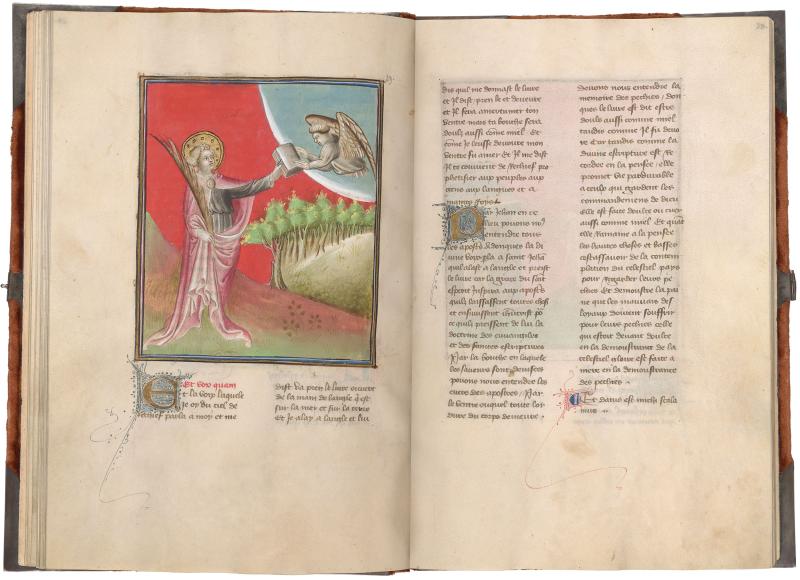 Et vox quam
Et la voix laquelle
Je oy du ciel de
rechief parla a moy et me
dist va pren le livre ouvert
de la main de langle q est
sur la mer et sur la terre
Et je alay a langle et lui
dis quil me donnast le livre
et il dist pren le et deveure
et il fera amertumer ton
ventre mais ta bouche sera
douls aussi come miel Et
come je leusse devoure mon
ventre fu amer Et il me dist
Il te convient de rechief pro
phetiser aux peuples aux
gens aux langues et a
maintes roys
Par Jehan en ce
lieu povons no9
entendre tous
les apostres adonques la di
vine voix pla a saint Jehan
quil alast a langle et preist
le livre car la grace du saint
esperit inspira aux apostres
quilz laissassent toutes choses
et ensuissent Jhucrist po
ce quilz preissent de lui la
doctrine des euvangiles
et des saintes escriptures
Par la bouche en laquele
les saveurs sont devisees
povons nous entendre les
cuers des apostres Par
le ventre ouquel toute lor
dure du corps demeure
devons nous entendre la
memoire des pechies don
ques le livre est dit estre
douls aussi comme miel
tandis comme il fu devo
re Car tandis comme la
divine escripture est re
cordee en la pensee elle
promet vie pardurable
a ceulx qui gardent les
commandemens de dieu
elle est faite doulce ou cuer
aussi comme miel Et quant
elle ramaine a la pensee
les hautes choses et basses
cestassavoir de la contem
plation du celestiel pays
pour regarder leurs pe
chies Et demonstre la pai
ne que les mauvais des
loyaux doivent souffrir
pour leurs pechies celle
qui estoit devant doulce
en la demonstrance de la
celestiel gloire est faite a
mere en la demonstrance
des pechies
Et datus est michi cala
mus